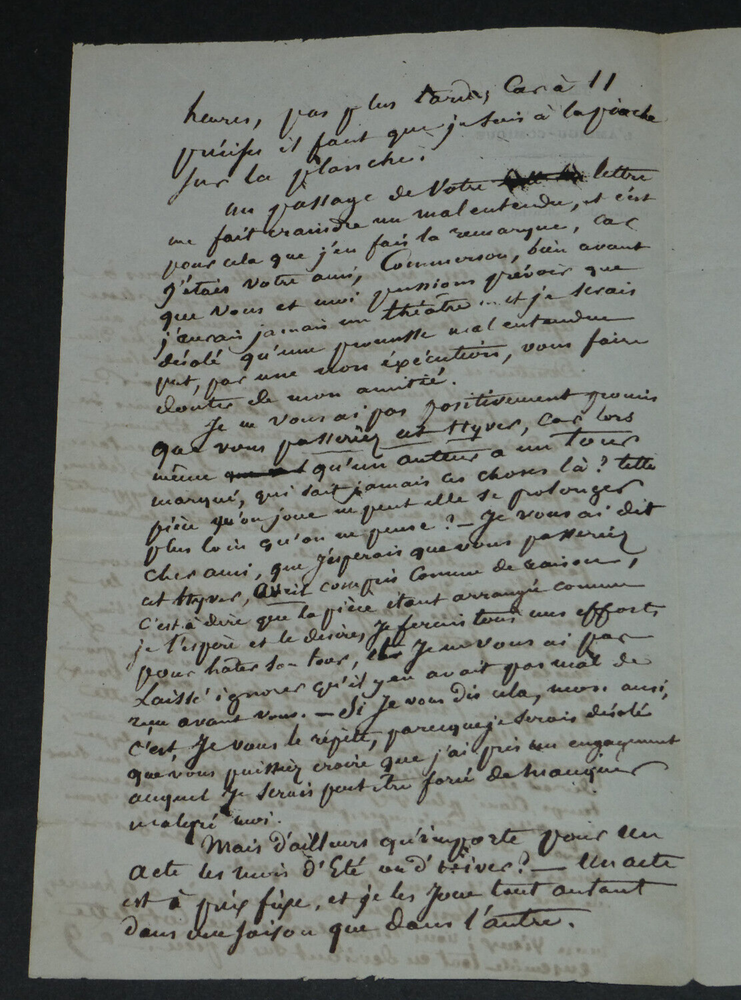 heures, pas plus tard, Car à 11
précises il faut que je sois à la pioche
sur la planche.
un passage de votre lettre
me fait craindre un malentendu, et c'est
pour cela que j'en fais la remarque, car
j'étais votre ami, Commerson, bien avant
que vous et moi pussions prévoir que
j'aurais jamais un théâtre... et je serais
désolé qu'une promesse mal entendue
put, par une non éxécution, vous faire
douter de mon amitié.
Je ne vous ai pas positivement promis
que vous passeriez cet Hyver, car lors
même qu'un auteur a un tour
marqué, qui sait jamais ces choses là? telle
pièce qu'on joue ne peut elle se prolonger
plus loin qu'on ne pense? — Je vous ai dit
cher ami, que j'espérais que vous passeriez
cet Hyver, avril compris comme de raison,
c'est à dire que la pièce étant arrangée comme
je l'espère et le désire, je ferais tous mes efforts
pour hâter son tour, Je ne vous ai pas
laissé ignorer qu'il y en avait pas mal de
reçu avant vous. — Si je vous dis cela, mon ami,
c'est, je vous le répète, parceque je serais désolé
que vous puissiez croire que j'ai pris un engagement
auquel je serais peut être forcé de manquer
malgré moi.
Mais d'ailleurs qu'importe pour un
acte les mois d'Eté ou d'hiver? — Un acte
est à prix fixe, et je les joue tout autant
dans une saison que dans l'autre.